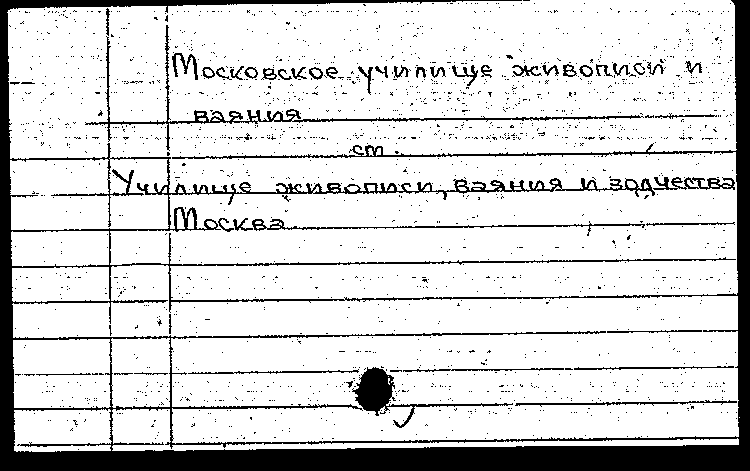 Московское училище живописи и
ваяния
ст.
Училище живописи, ваяния и зодчества
Москва